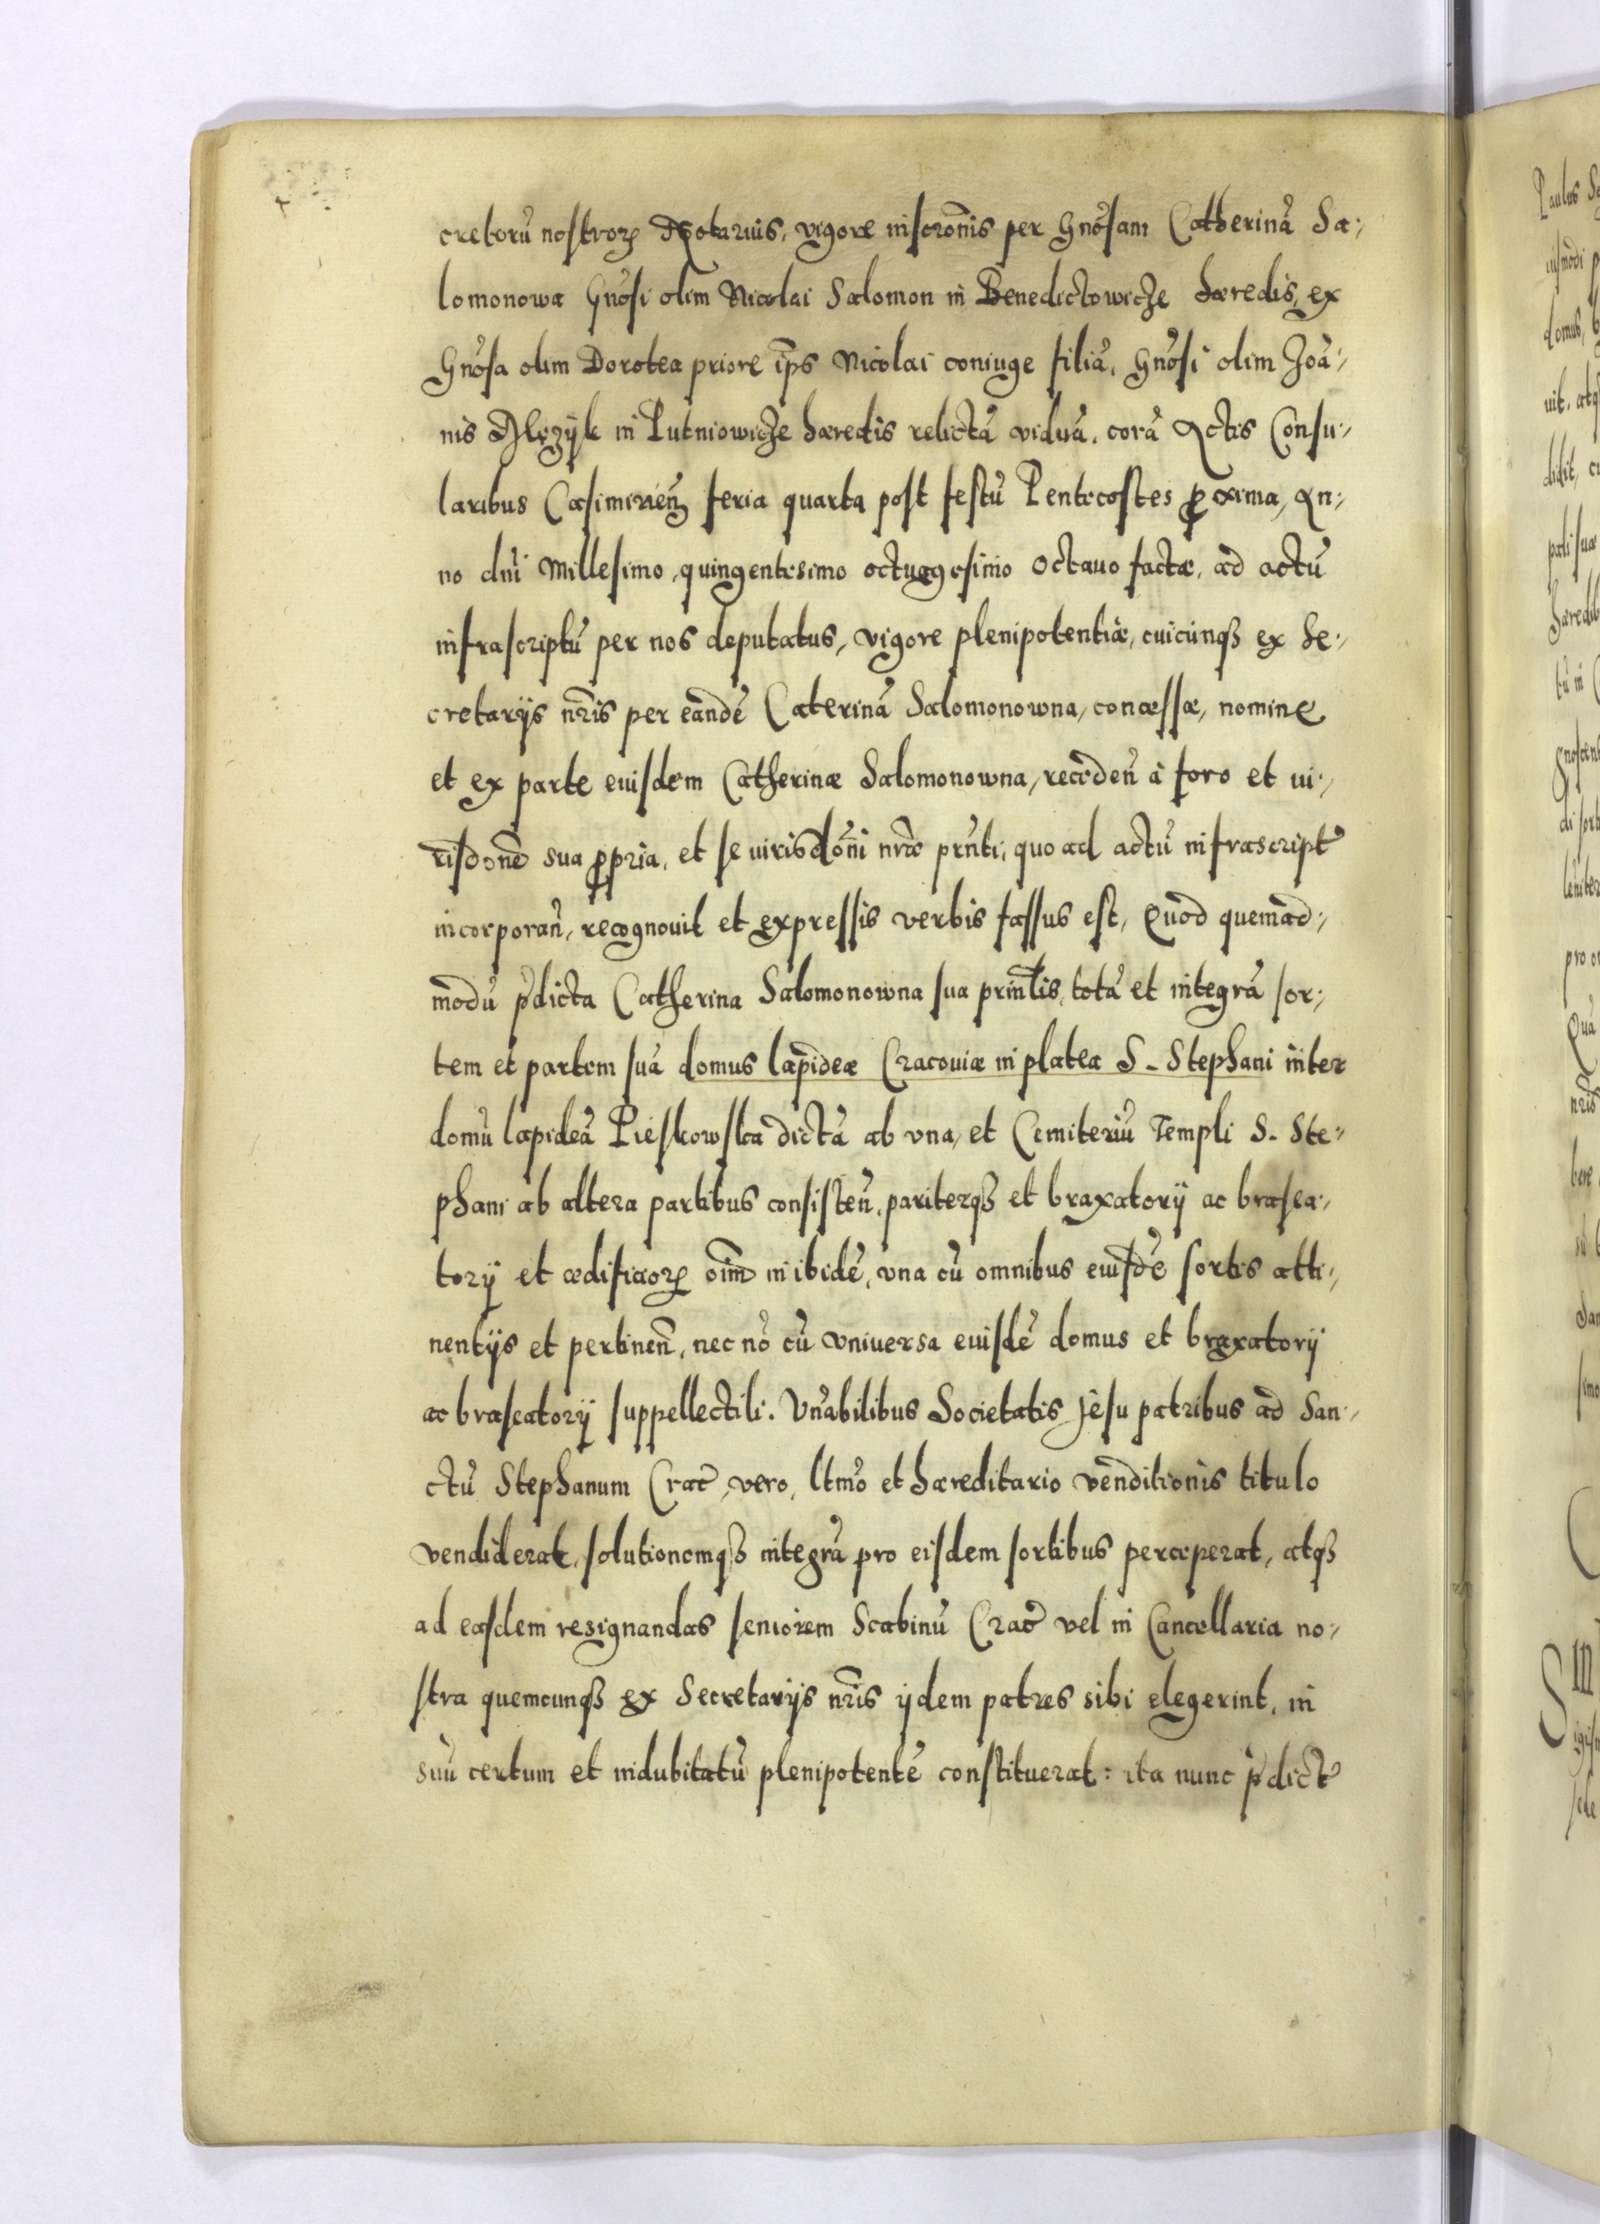 cretorũ nostroꝝ Notarius, vigore inscrõnis per Gnõsam Catherinã Sa-
lomonowa Gnõsi olim Nicolai Salomon in Benedictowicze hæredis, ex
Gnõsa olim Dorotea priore ip̃s Nicolai coniuge filiã, Gnõsi olim Joã-
nis in Putniowicze hæredis relictã viduã, corã Actis Consu-
laribus Casimirień feria quarta post festũ Pentecostes ꝓxima, An-
no dñi Millesimo, quingentesimo octuagesimo octauo factæ, ad actũ
infrascriptũ per nos deputatus, vigore plenipotentiæ, cuicunqꝫ ex Se-
cretarijs nr̃is per eãndẽ Caterinã Salomonowna, concessæ, nomine
et ex parte euisdem Catherinæ Salomonowna, recedeñ à foro et iu-
risdonẽ sua ꝓpria, et se iurisdõni nr̃æ prñti, quo ad actũ infrascript̃
incorporañ, recognouit et expressis verbis fassus est, Quod quemad-
modũ p̃dicta Catherina Salomonowna sua prinl̃is, totã et integrã sor-
tem et partem suã domus lapideæ Cracouiæ in platea S. Stephani inter
domũ lapideã Pieskowska dictã ab vna, et Cemiteriũ Templi S. Ste-
phani ab altera partibus consisteñ, pariterqꝫ et braxatorij ac brasea-
torij et ædificioꝝ oĩm inibidẽ, vna cũ omnibus euisdẽ sortis atti-
nentijs et pertineñ, nec nõ cũ vniuersa euisdẽ domus et braxatorij
ac braseatorij suppellectili. Vñabilibus Societatis Jesu patribus ad San-
ctũ Stephanum Crac̃, vero, ltm̃o et hæreditario venditionis titulo
vendiderat, solutionemqꝫ integrã pro eisdem sortibus perceperat, atqꝫ
ad easdem resignandas seniorem Scabinũ Crac̃ vel in Cancellaria no-
stra quemcunqꝫ ex Secretarijs nr̃is ijdem patres sibi elegerint, in
suũ certum et indubitatũ plenipotentẽ constituerat: ita nunc p̃dict̃